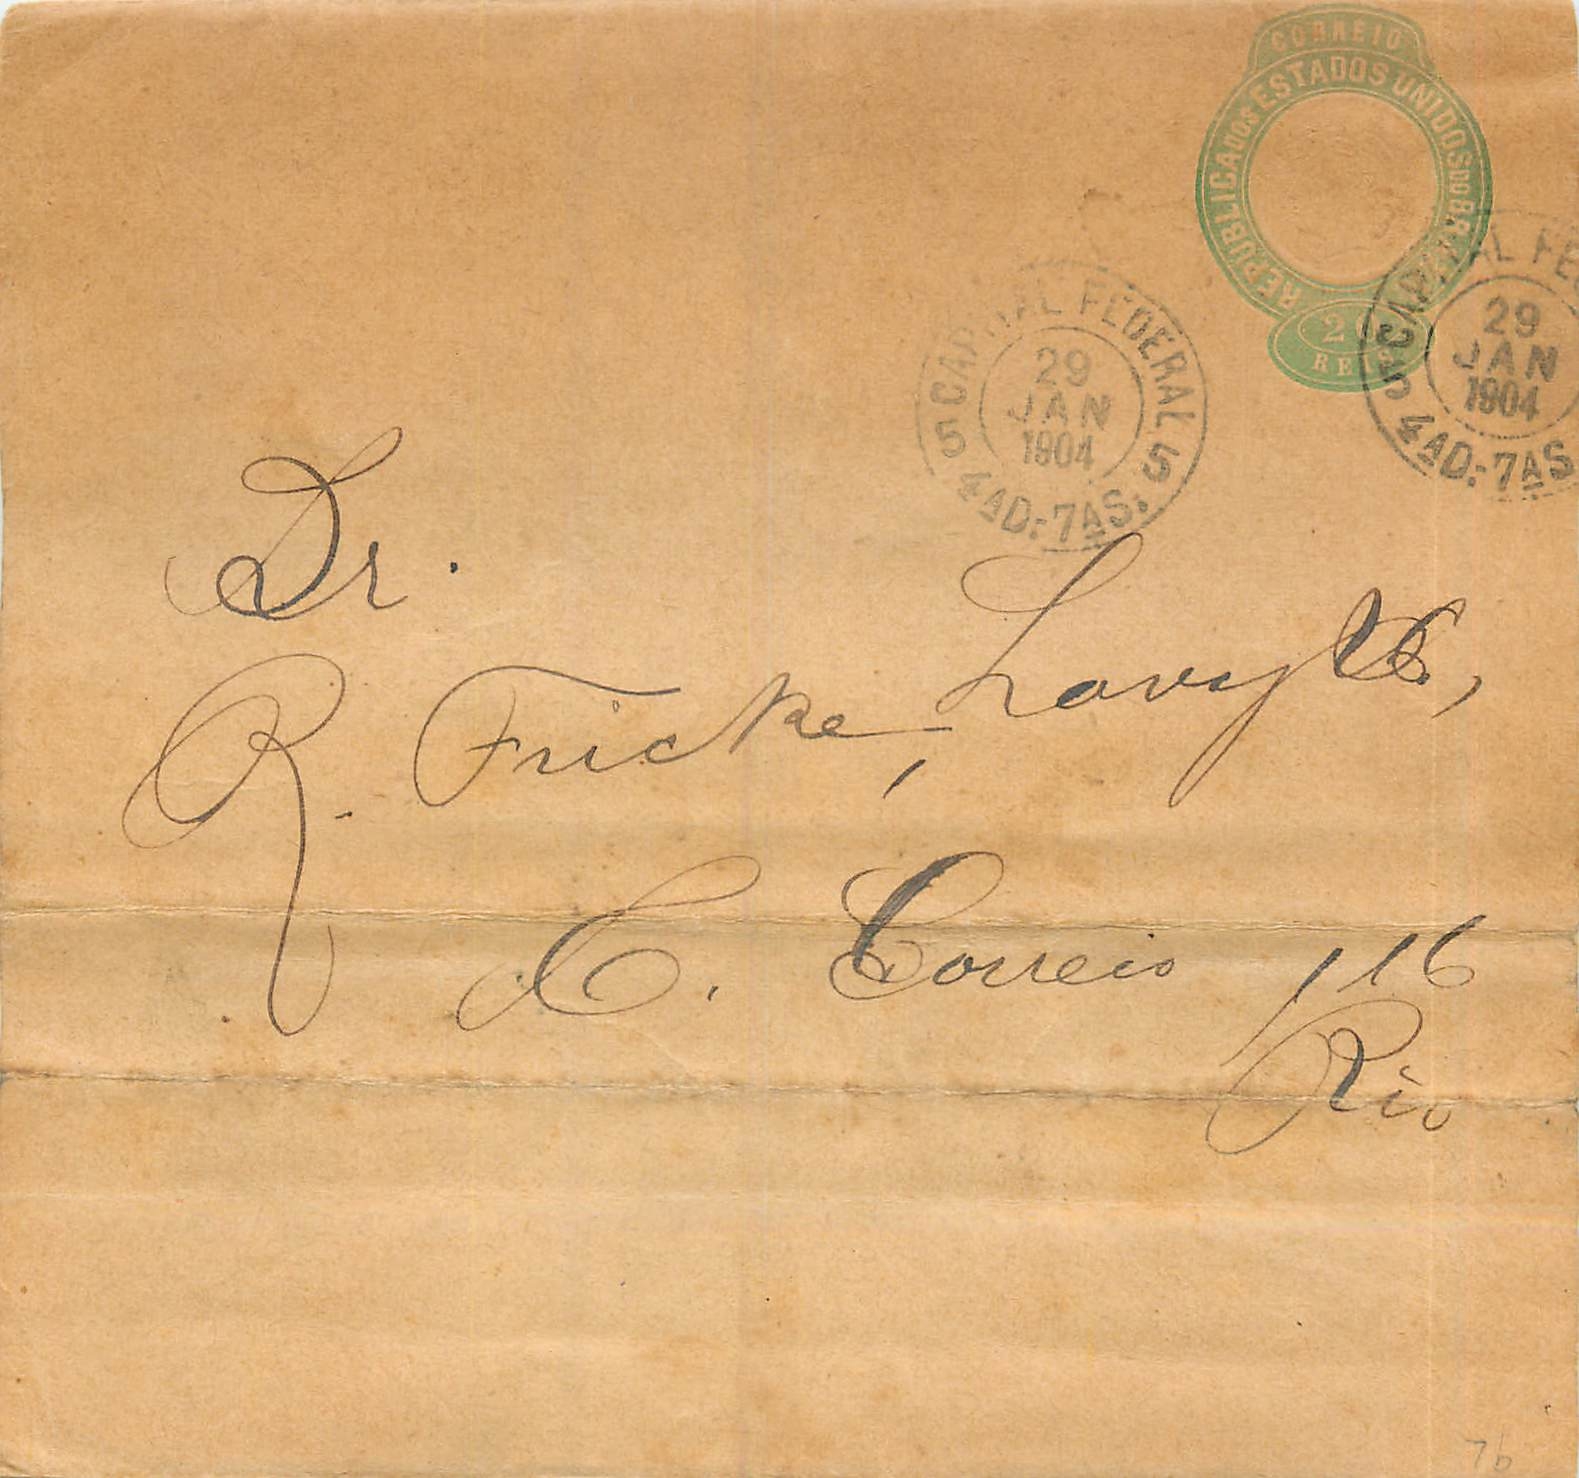 CORREIO
REPUBLICA DOS ESTADOS UNIDOS DO BRAZIL
2
REIS
CAPITAL FEDERAL
5 5
29
JAN
1904
4AD:-7AS:
CAPITAL FE
5
29
JAN
1904
4AD:-7AS
Dr.
R. Fricke,
C. Correio 116
Rio
7b